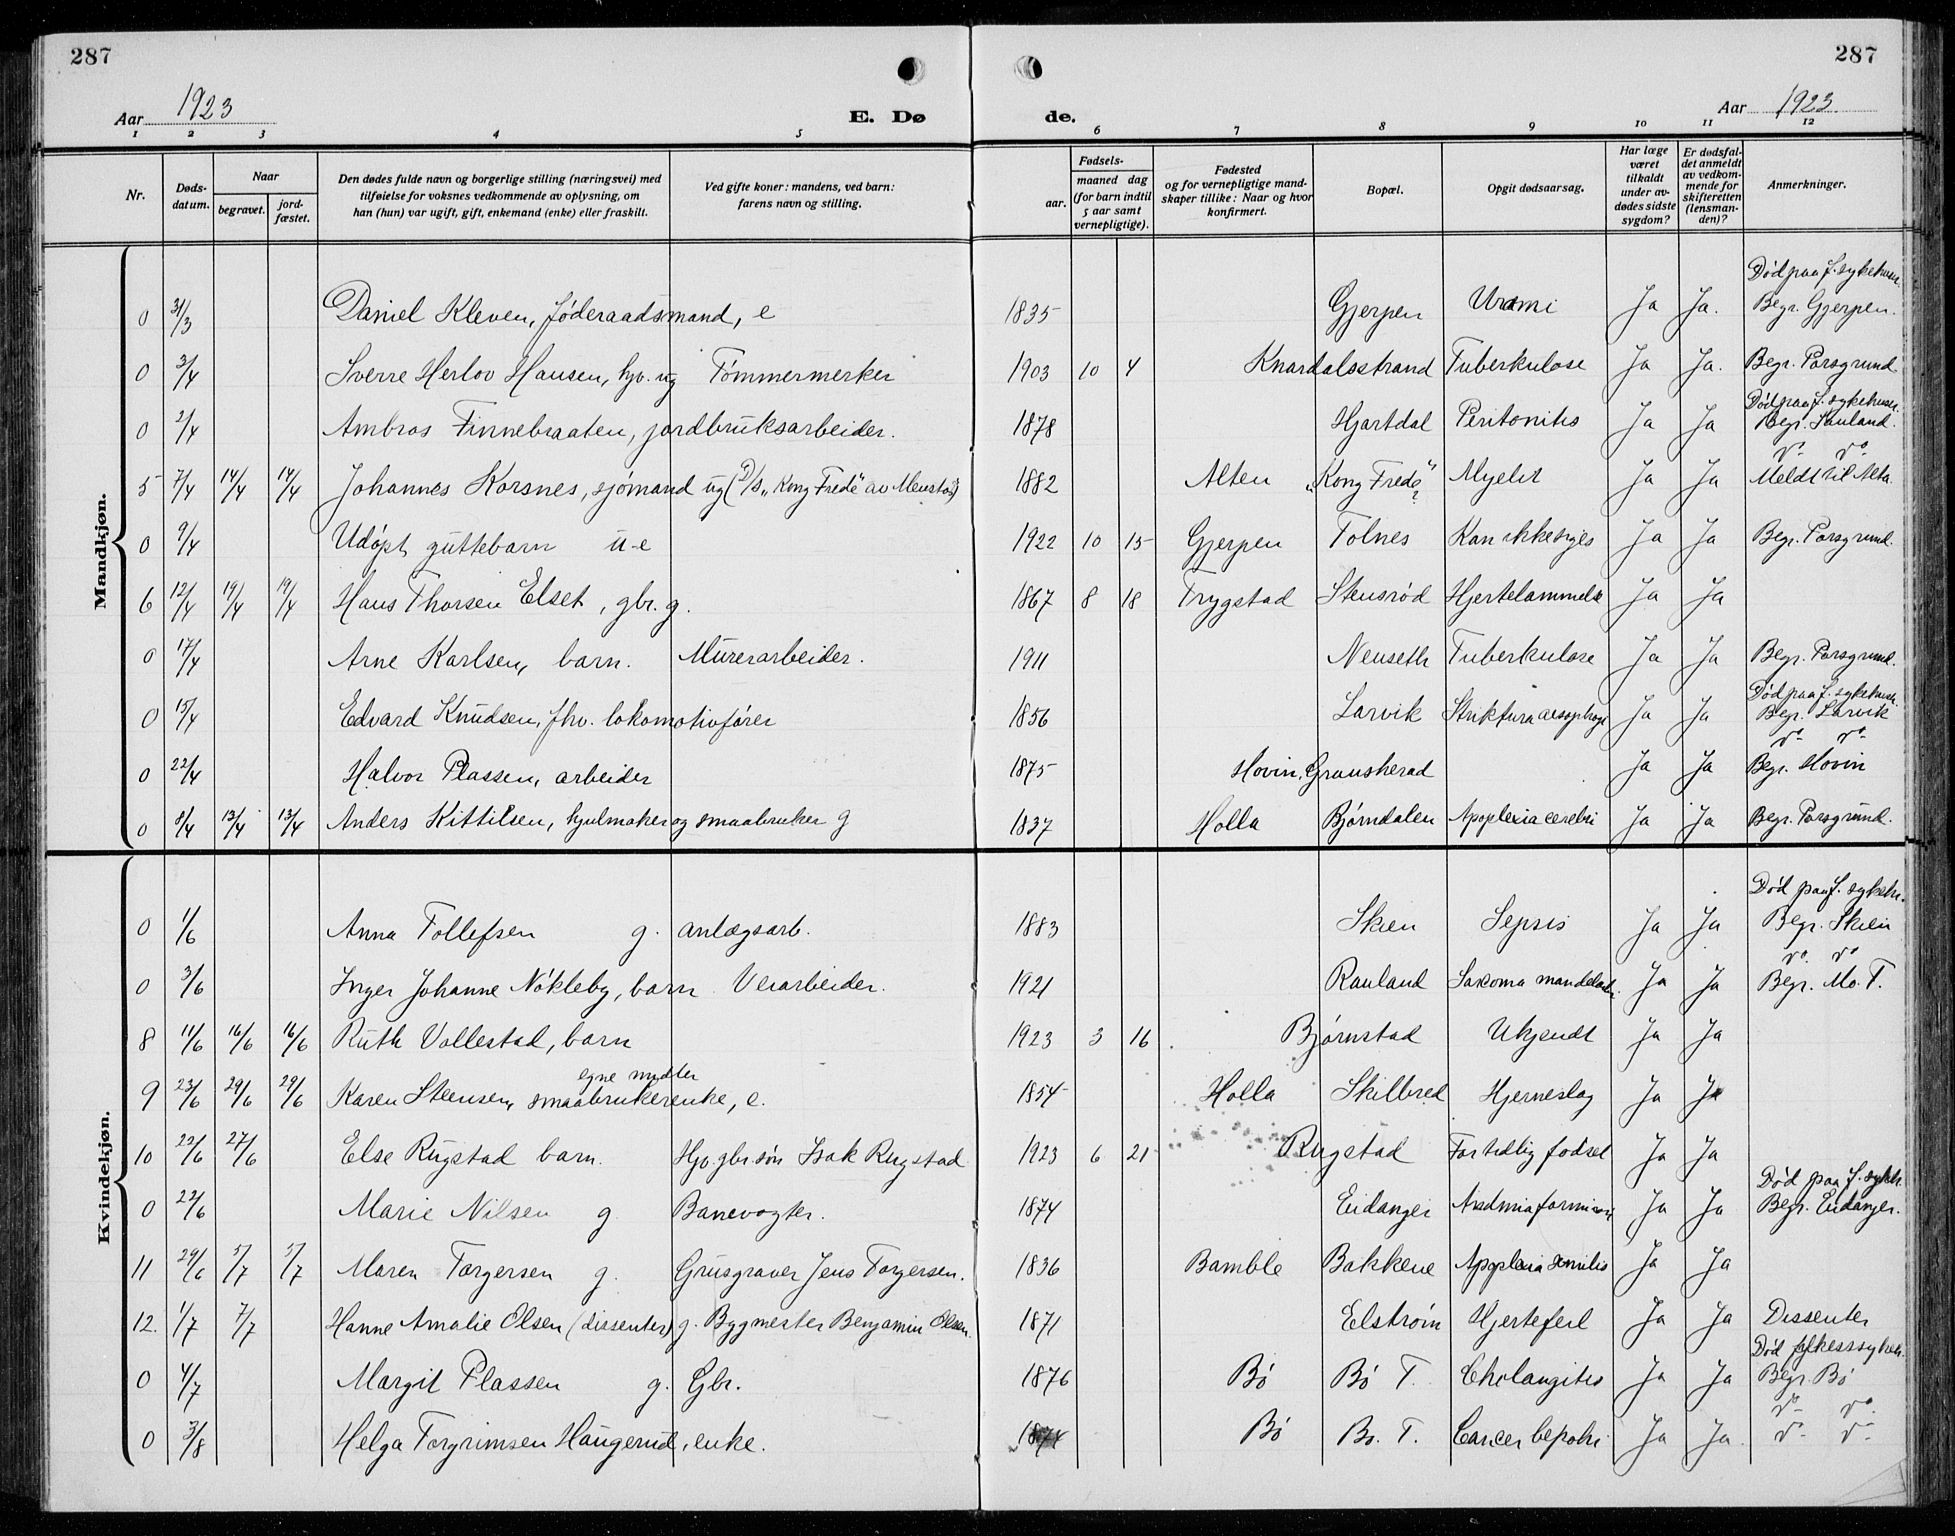 287
287
Aar 1923
E. Dø
de.
Aar 1923
1 2 3 4 5 6 7 8 9 10 11 12
Nr.
Døds-datum.
Naar
begravet.
jord-fæstet.
Den dødes fulde navn og borgerlige stilling (næringsvei) med tilføielse for voksnes vedkommende av oplysning, om han (hun) var ugift, gift, enkemand (enke) eller fraskilt.
Ved gifte koner: mandens, ved barn: farens navn og stilling.
Fødsels-
aar.
maaned dag (for barn indtil 5 aar samt vernepligtige).
Fødested og for vernepligtige mandskaper tillike: Naar og hvor konfirmert.
Bopæl.
Opgit dødsaarsag.
Har læge været tilkaldt under avdødes sidste sygdom?
Er dødsfaldet anmeldt av vedkommende for skifteretten (lensmanden)?
Anmerkninger.
Mandkjøn.
0 31/3 Daniel Kleven, føderaadsmand, e 1835 Gjerpen Urami Ja Ja. Død paa f. sykehuset. Begr. Gjerpen.
0 3/4 Sverre Herlov Hansen, hjv. ug Tømmermerker 1903 10 4 Knardalsstrand Tuberkulose Ja Ja. Begr. Porsgrund
0 2/4 Ambros Finnebraaten, jordbruksarbeider. 1878 Hjartdal Peritonitis Ja Ja Død paa f. sykehuset. Begr. Sauland.
5 7/4 14/4 14/4 Johannes Korsnes, sjømand ug (D/S „Kong Frede" av Menstad) 1882 Alten „Kong Frede" Myelit Ja Ja do do Meldt til Alta.
0 9/4 Udøpt guttebarn u-e 1922 10 15 Gjerpen Tolnes Kan ikke siges Ja Ja Begr. Porsgrund.
6 12/4 19/4 19/4 Hans Thorsen Elset, gbr. g. 1867 8 18 Trygstad Stensrød Hjertelammelse Ja Ja
0 17/4 Arne Karlsen, barn. Murerarbeider. 1911 Nenseth Tuberkulose Ja Ja Begr. Porsgrund.
0 15/4 Edvard Knudsen, fhv. lokomotivfører 1856 Larvik Striktura aesophagi Ja Ja Død paa f. sykehuset. Begr. Larvik
0 22/4 Halvor Plassen, arbeider 1875 Hovin, Gransherad Ja Ja do do Begr. Hovin
0 8/4 13/4 13/4 Anders Kittilsen, hjulmaker og smaabruker g 1837 Holla Bjørndalen Apoplexia cerebri Ja Ja Begr. Porsgrund.
Kvindekjøn.
0 1/6 Anna Tollefsen g. anlægsarb. 1883 Skien Sepsis Ja Ja Død paa f. sykehu. Begr. Skien
0 3/6 Inger Johanne Nøkleby, barn Verarbeider. 1921 Rauland Ja Ja do do Begr. Mo. T.
8 11/6 16/6 16/6 Ruth Vollestad, barn 1923 3 16 Bjørnstad Ukjendt Ja Ja
9 23/6 29/6 29/6 Karen Steensen, smaabrukerenke, e. egne midler 1854 Holla Skilbred Hjerneslag Ja Ja
10 22/6 27/6 Else Rugstad barn. Hjv. gbr. søn Isak Rugstad 1923 6 21 Rugstad For tidlig fødsel Ja Ja
0 22/6 Marie Nilsen g. Banevogter. 1874 Eidanger Ja Ja Død paa f. sykeh. Begr. Eidanger.
11 29/6 5/7 5/7 Maren Torgersen g. Grusgraver Jens Torgersen. 1836 Bamble Bakkene Apoplexia senilis Ja Ja
12. 1/7 7/7 Hanne Amalie Olsen (dissenter) g. Bygmester Benjamin Olsen. 1871 Elstrøm Hjertefeil Ja Ja Dissenter
0 4/7 Margit Plassen g. Gbr. 1876 Bø Bø T. Cholangitis Ja Ja Død fylkessykeh. Begr. Bø
0 3/8 Helga Torgrimsen Haugerud, enke. Bø Bø. T. Cancer Ja Ja. do do do do